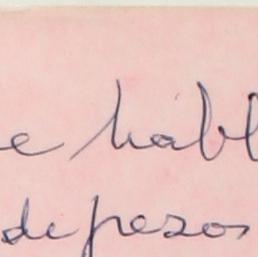 e habl
de pesos